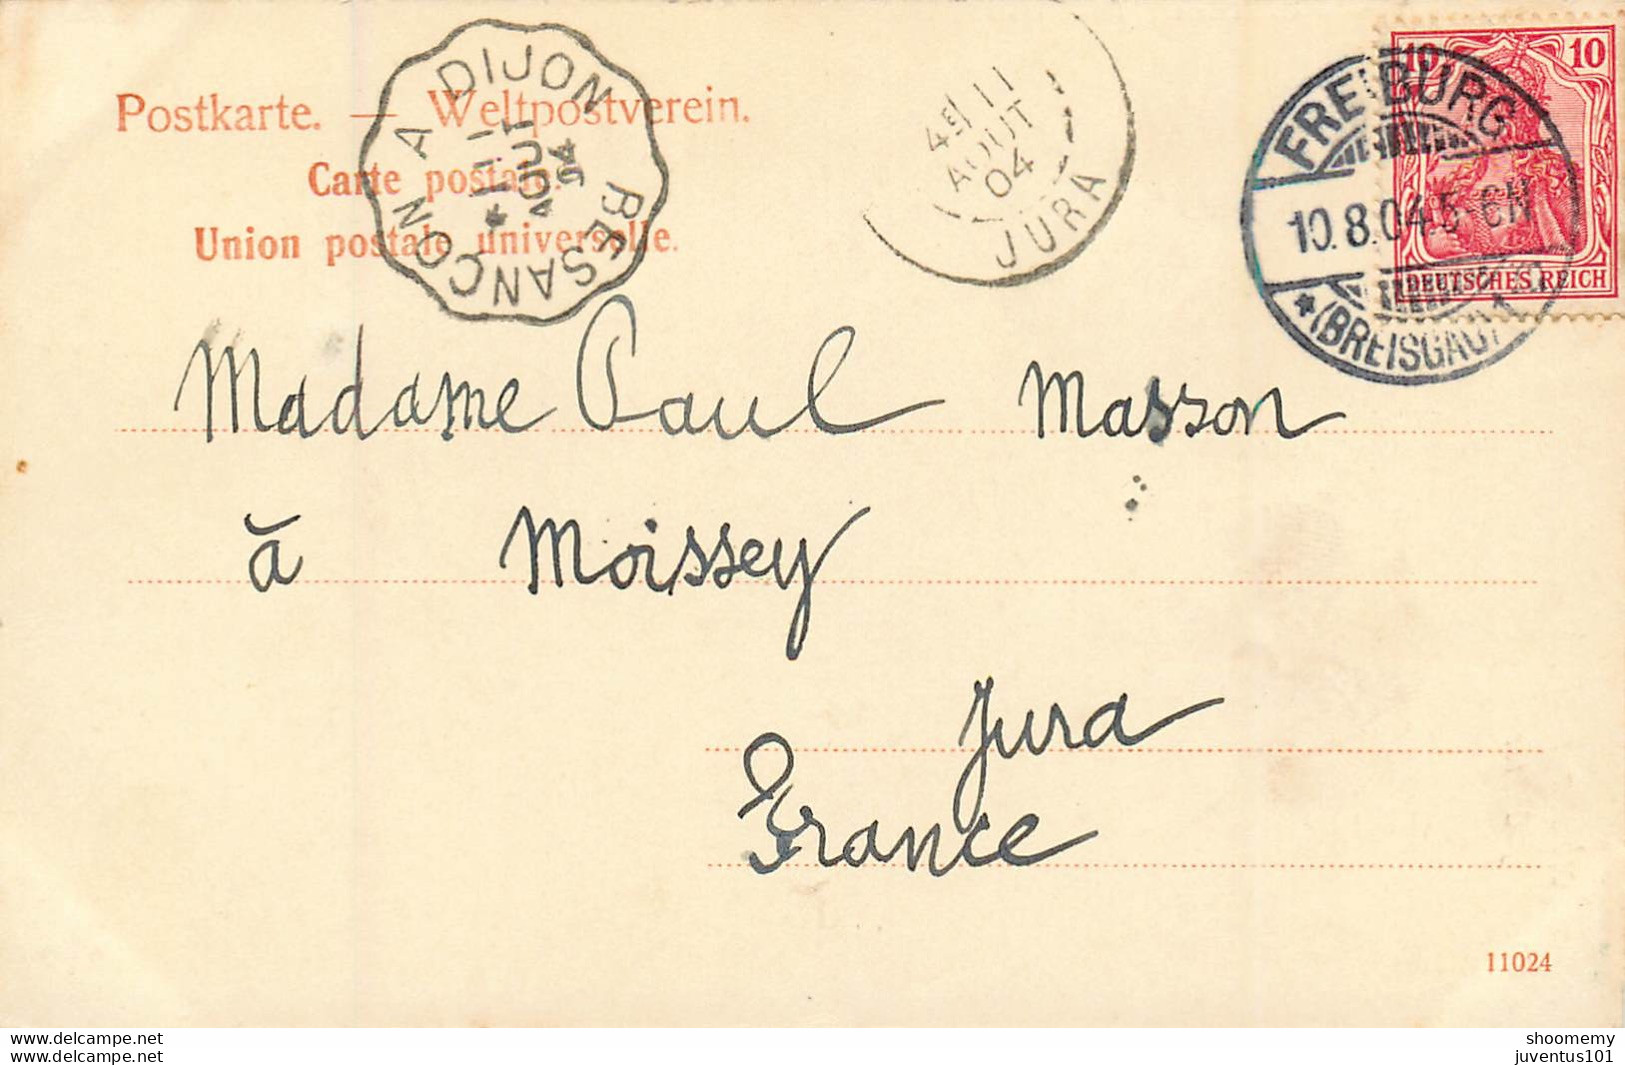 Postkarte. — Weltpostverein.
Carte postale.
Union postale universelle.
BESANÇON A DIJON
11
AOUT
04
4E 11
AOUT
04
JURA
10 10
DEUTSCHES REICH
FREIBURG
10.8.04.5-6N
*(BREISGAU)
Madame Paul Masson
à Moissey
Jura
France
11024
shoomemy
juventus101
delcampe.net
delcampe.net